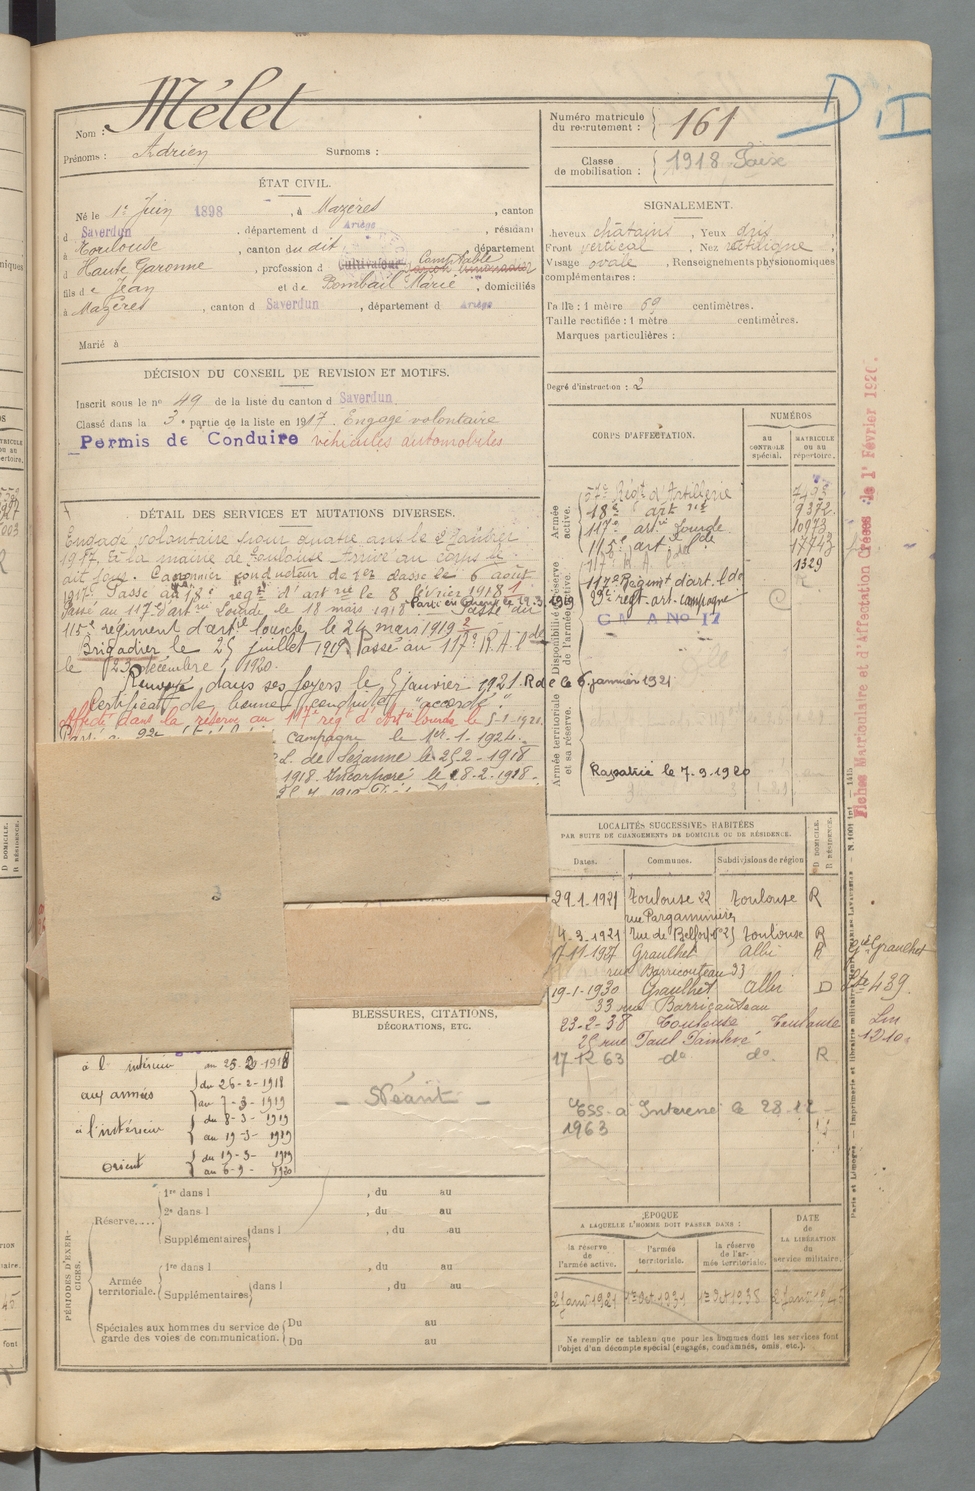 Mélet
Nom :
Prénoms : Adrien Surnoms :
Numéro matricule du recrutement : 161
Classe de mobilisation : 1918
ÉTAT CIVIL.
Né le 1er Juin 1898, à Mazères, canton
d Saverdun, département d Ariège, résidant
à Toulouse, canton du dit, département
d Haute Garonne, profession d Cultivateur Comptable
fils de Jean et de Bombail Marie, domiciliés
à Mazères, canton d Saverdun, département d Ariège
Marié à
SIGNALEMENT.
cheveux châtains, Yeux gris
Front vertical, Nez rectiligne
Visage ovale, Renseignements physionomiques
complémentaires :
Taille : 1 mètre 60 centimètres.
Taille rectifiée : 1 mètre centimètres.
Marques particulières :
Degré d'instruction : 2
DÉCISION DU CONSEIL DE REVISION ET MOTIFS.
Inscrit sous le no 49 de la liste du canton d Saverdun
Classé dans la 3e partie de la liste en 1917. Engagé volontaire
Permis de Conduire véhicules automobiles
DÉTAIL DES SERVICES ET MUTATIONS DIVERSES.
Engagé volontaire pour quatre ans le
1917, à la mairie de Toulouse. Arrivé au corps et
dit jour. Canonnier conducteur de 2e classe le 6 août
1917. Passé au 18e régt d'artrie le 8 février 1918
Passé au 117e d'artrie Lourde, le 18 mars 1918 Parti en Orient le 19.3.1919 Passé au
115e régiment d'artie lourde le 24 mars 1919
Brigadier le 25 juillet 1919. Passé au 117e R.A.Lde
le 23 décembre 1920.
Renvoyé dans ses foyers le 5 janvier 1921. R d C le 6 janvier 1921
Certificat de bonne conduite "accordé".
Affecté dans la réserve au 117e rég. d'Artie Lourde le 5-1-1921.
campagne le 1er-1-1924.
de Sézanne le 25-2-1918
1918. Incorporé le 28-2-1918.
CORPS D'AFFECTATION.
NUMÉROS
au CONTRÔLE spécial.
MATRICULE ou au répertoire.
Armée active.
57e Régt d'Artillerie 7495
18e artrie 9372
117e artrie Lourde 10973
115e artie lde 17743
117e R.A.L. 1329
Disponibilité et réserve de l'armée active.
117e Régiment d'art. lde
9e régt-art-campagne
C M A No 17
Armée territoriale et sa réserve.
Rapatrié le 7.9.1920
Fiches Matriculaire et d'Affectation Créées le 1er Février 1926.
LOCALITÉS SUCCESSIVES HABITÉES
PAR SUITE DE CHANGEMENTS DE DOMICILE OU DE RÉSIDENCE.
Dates. Communes. Subdivisions de région
D DOMICILE. R RÉSIDENCE.
29-1-1921 Toulouse 22 Toulouse R
rue Pargaminières
4-3-1921 rue de Belfort 25 Toulouse R
17-11-1927 Graulhet Albi R
rue Barricouteau 33
19-1-1930 Graulhet Albi D
33 rue Barricouteau
23-2-38 Toulouse Toulouse
25 rue Paul Painlevé
17-12 63 do do R
Graulhet
489
1210
ESS-a Interene le 28-12
1963
3
BLESSURES, CITATIONS,
DÉCORATIONS, ETC.
- Néant -
à l'intérieur au 25-2-1918
aux armées du 26-2-1918
au 7-3-1919
à l'intérieur du 8-3-1919
au 19-3-1919
orient du 19-3-1919
au 6-9-1920
PÉRIODES D'EXERCICES.
Réserve....
1re dans l , du au
2e dans l , du au
Supplémentaires dans l , du au
Armée territoriale.
1re dans l , du au
Supplémentaires dans l , du au
Spéciales aux hommes du service de garde des voies de communication.
Du au
Du au
ÉPOQUE
A LAQUELLE L'HOMME DOIT PASSER DANS :
la réserve de l'armée active.
l'armée territoriale.
la réserve de l'armée territoriale.
DATE de LA LIBÉRATION du service militaire.
2 Janv 1921 1er Oct 1931 1er Oct 1938 2 Janv 1945
Ne remplir ce tableau que pour les hommes dont les services font
l'objet d'un décompte spécial (engagés, condamnés, omis, etc.).
Paris et Limoges. — Imprimerie et librairie militaires Henri CHARLES-LAVAUZELLE